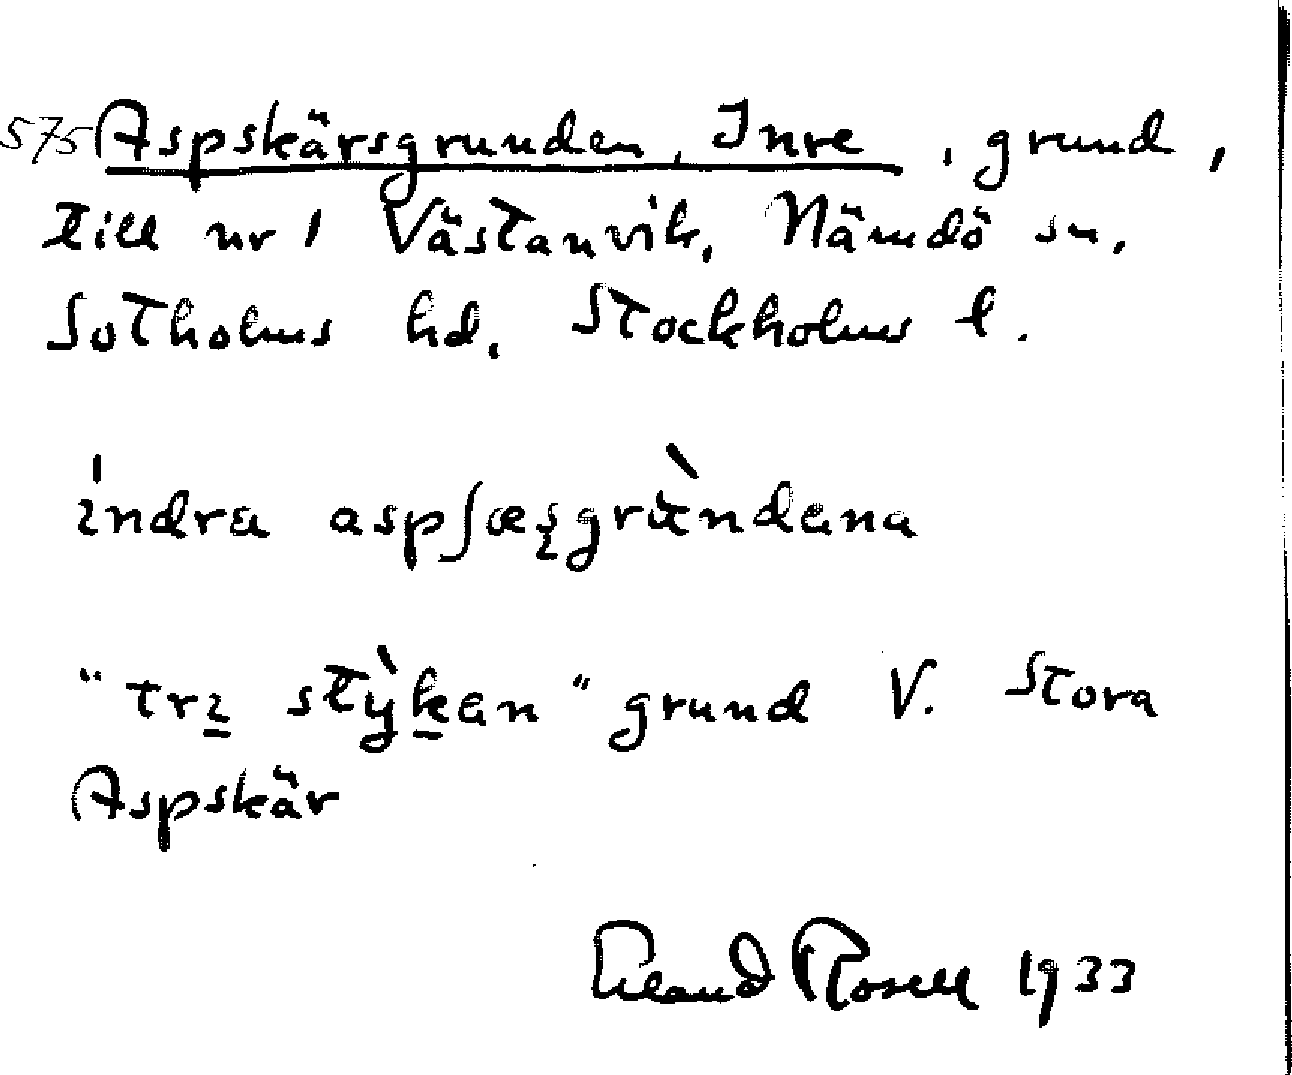 575 Aspskärsgrunden, Inre, grund,
till nr 1 Västanvik, Nämdö sn,
Sotholms hd, Stockholms l.
indra aspʃæsgrùndana
"trɩ stỳkan" grund V. Stora
Aspskär
Erland Rosell 1933